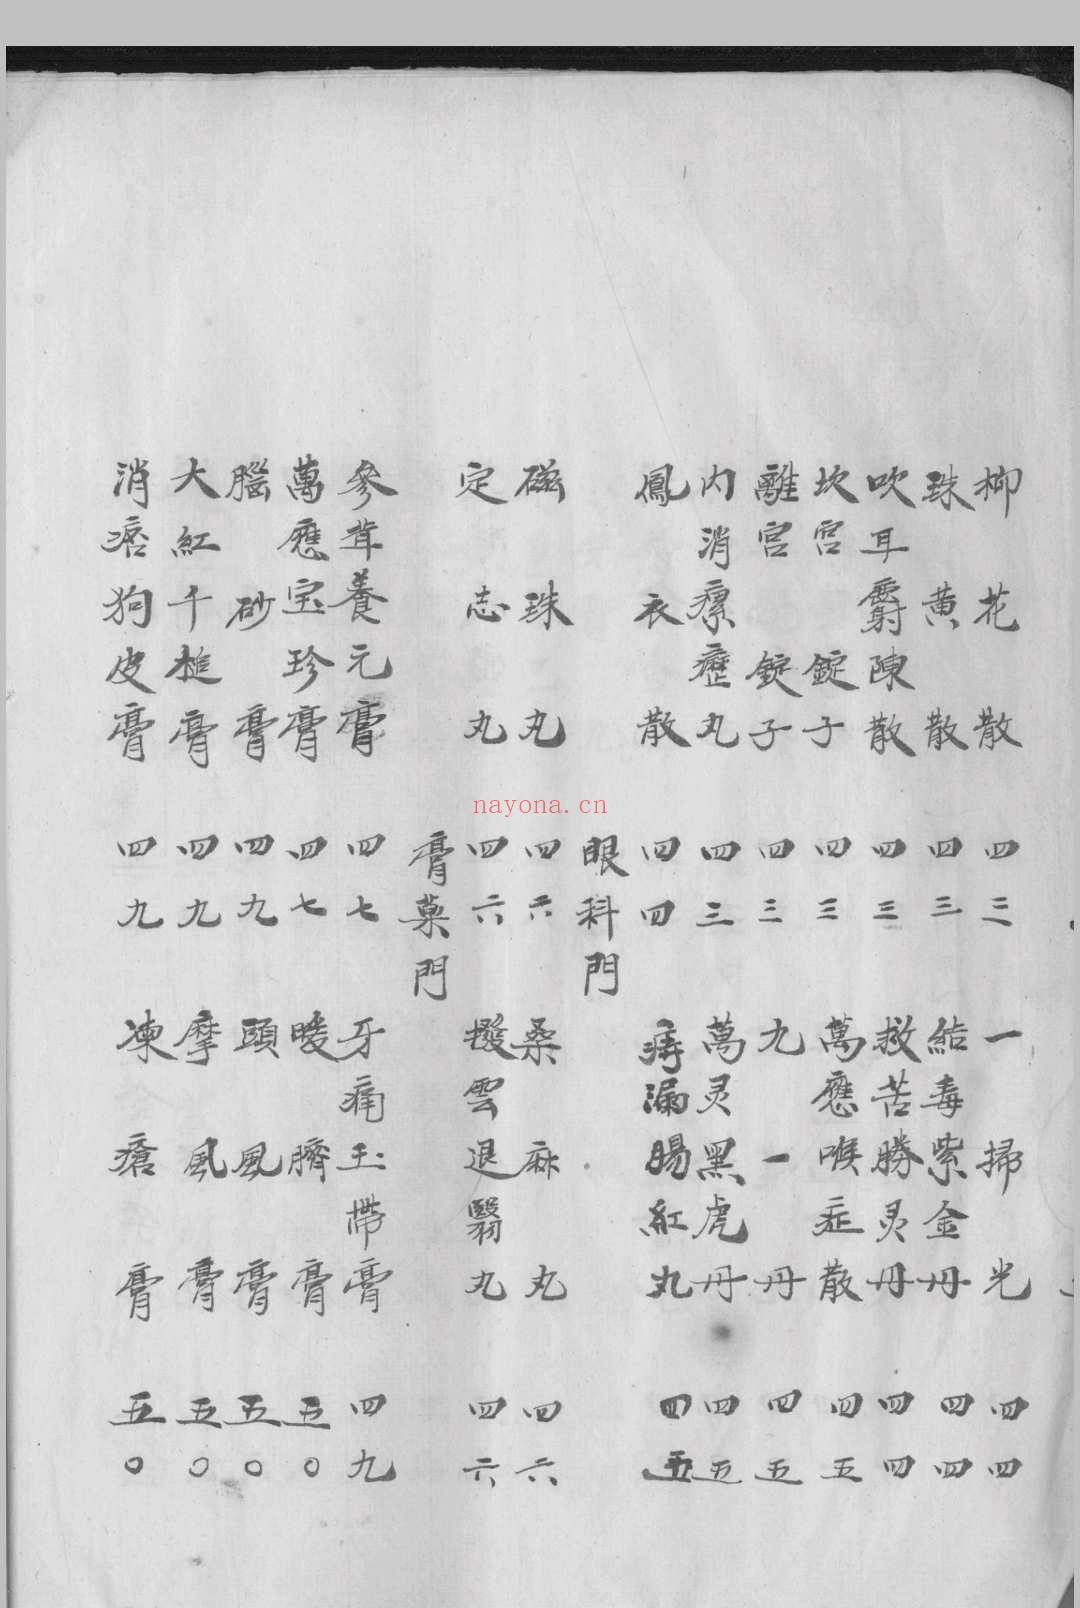 柳花散 四三 一掃光 四四
珠黄散 四三 結毒紫金丹 四四
吹耳麝陳散 四三 救苦勝灵丹 四四
坎宮錠子 四三 萬應喉症散 四五
離宮錠子 四三 九一丹 四五
内消瘰癧丸 四三 萬灵黑虎丹 四五
鳳衣散 四四 痔漏腸紅丸 四五
眼科門
磁珠丸 四六 桑麻丸 四六
定志丸 四六 撥雲退翳丸 四六
膏藥門
參茸養元膏 四七 牙痛玉帶膏 四九
萬應宝珍膏 四七 暖臍膏 五〇
腦砂膏 四九 頭風膏 五〇
大紅千槌膏 四九 摩風膏 五〇
消痞狗皮膏 四九 凍瘡膏 五〇
nayona.cn